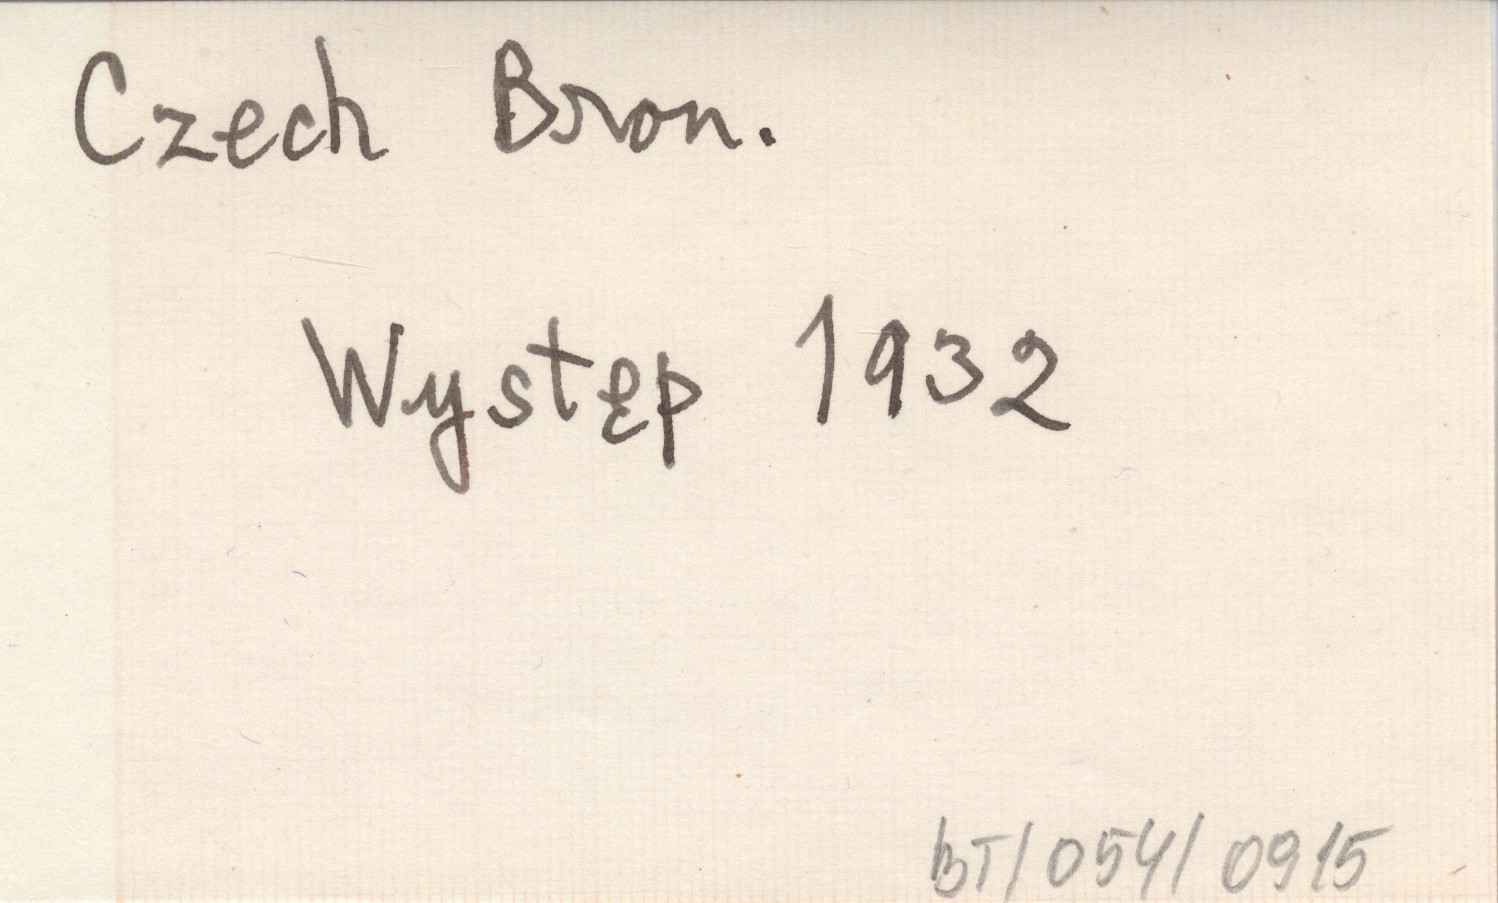 Czech Bron.
Występ 1932
BT/054/0915